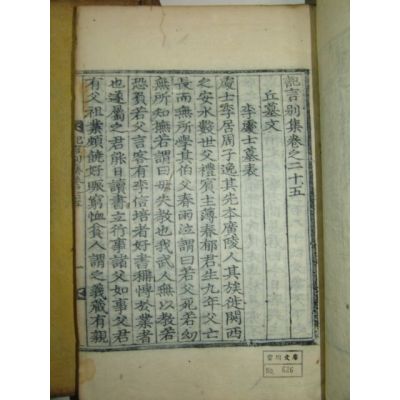 記言別集卷之二十五
丘墓文
李處士墓表
處士李居周子逸其先本廣陵人其族徙關西
之安水數世父禮賓主薄春郁君生九年父亡
長而無所學其伯父春雨泣謂曰若父死若幼
無所知撫若謂曰毋失教也我武人無以教若
恐負若父言客有李信培者好書猶博於業者
也遂屬之君能日讀書立行事諸父如事父君
有父祖業頗饒好賑窮恤食人謂之義藏有親
記言別集卷二十五
一
雪川文庫
No. 626